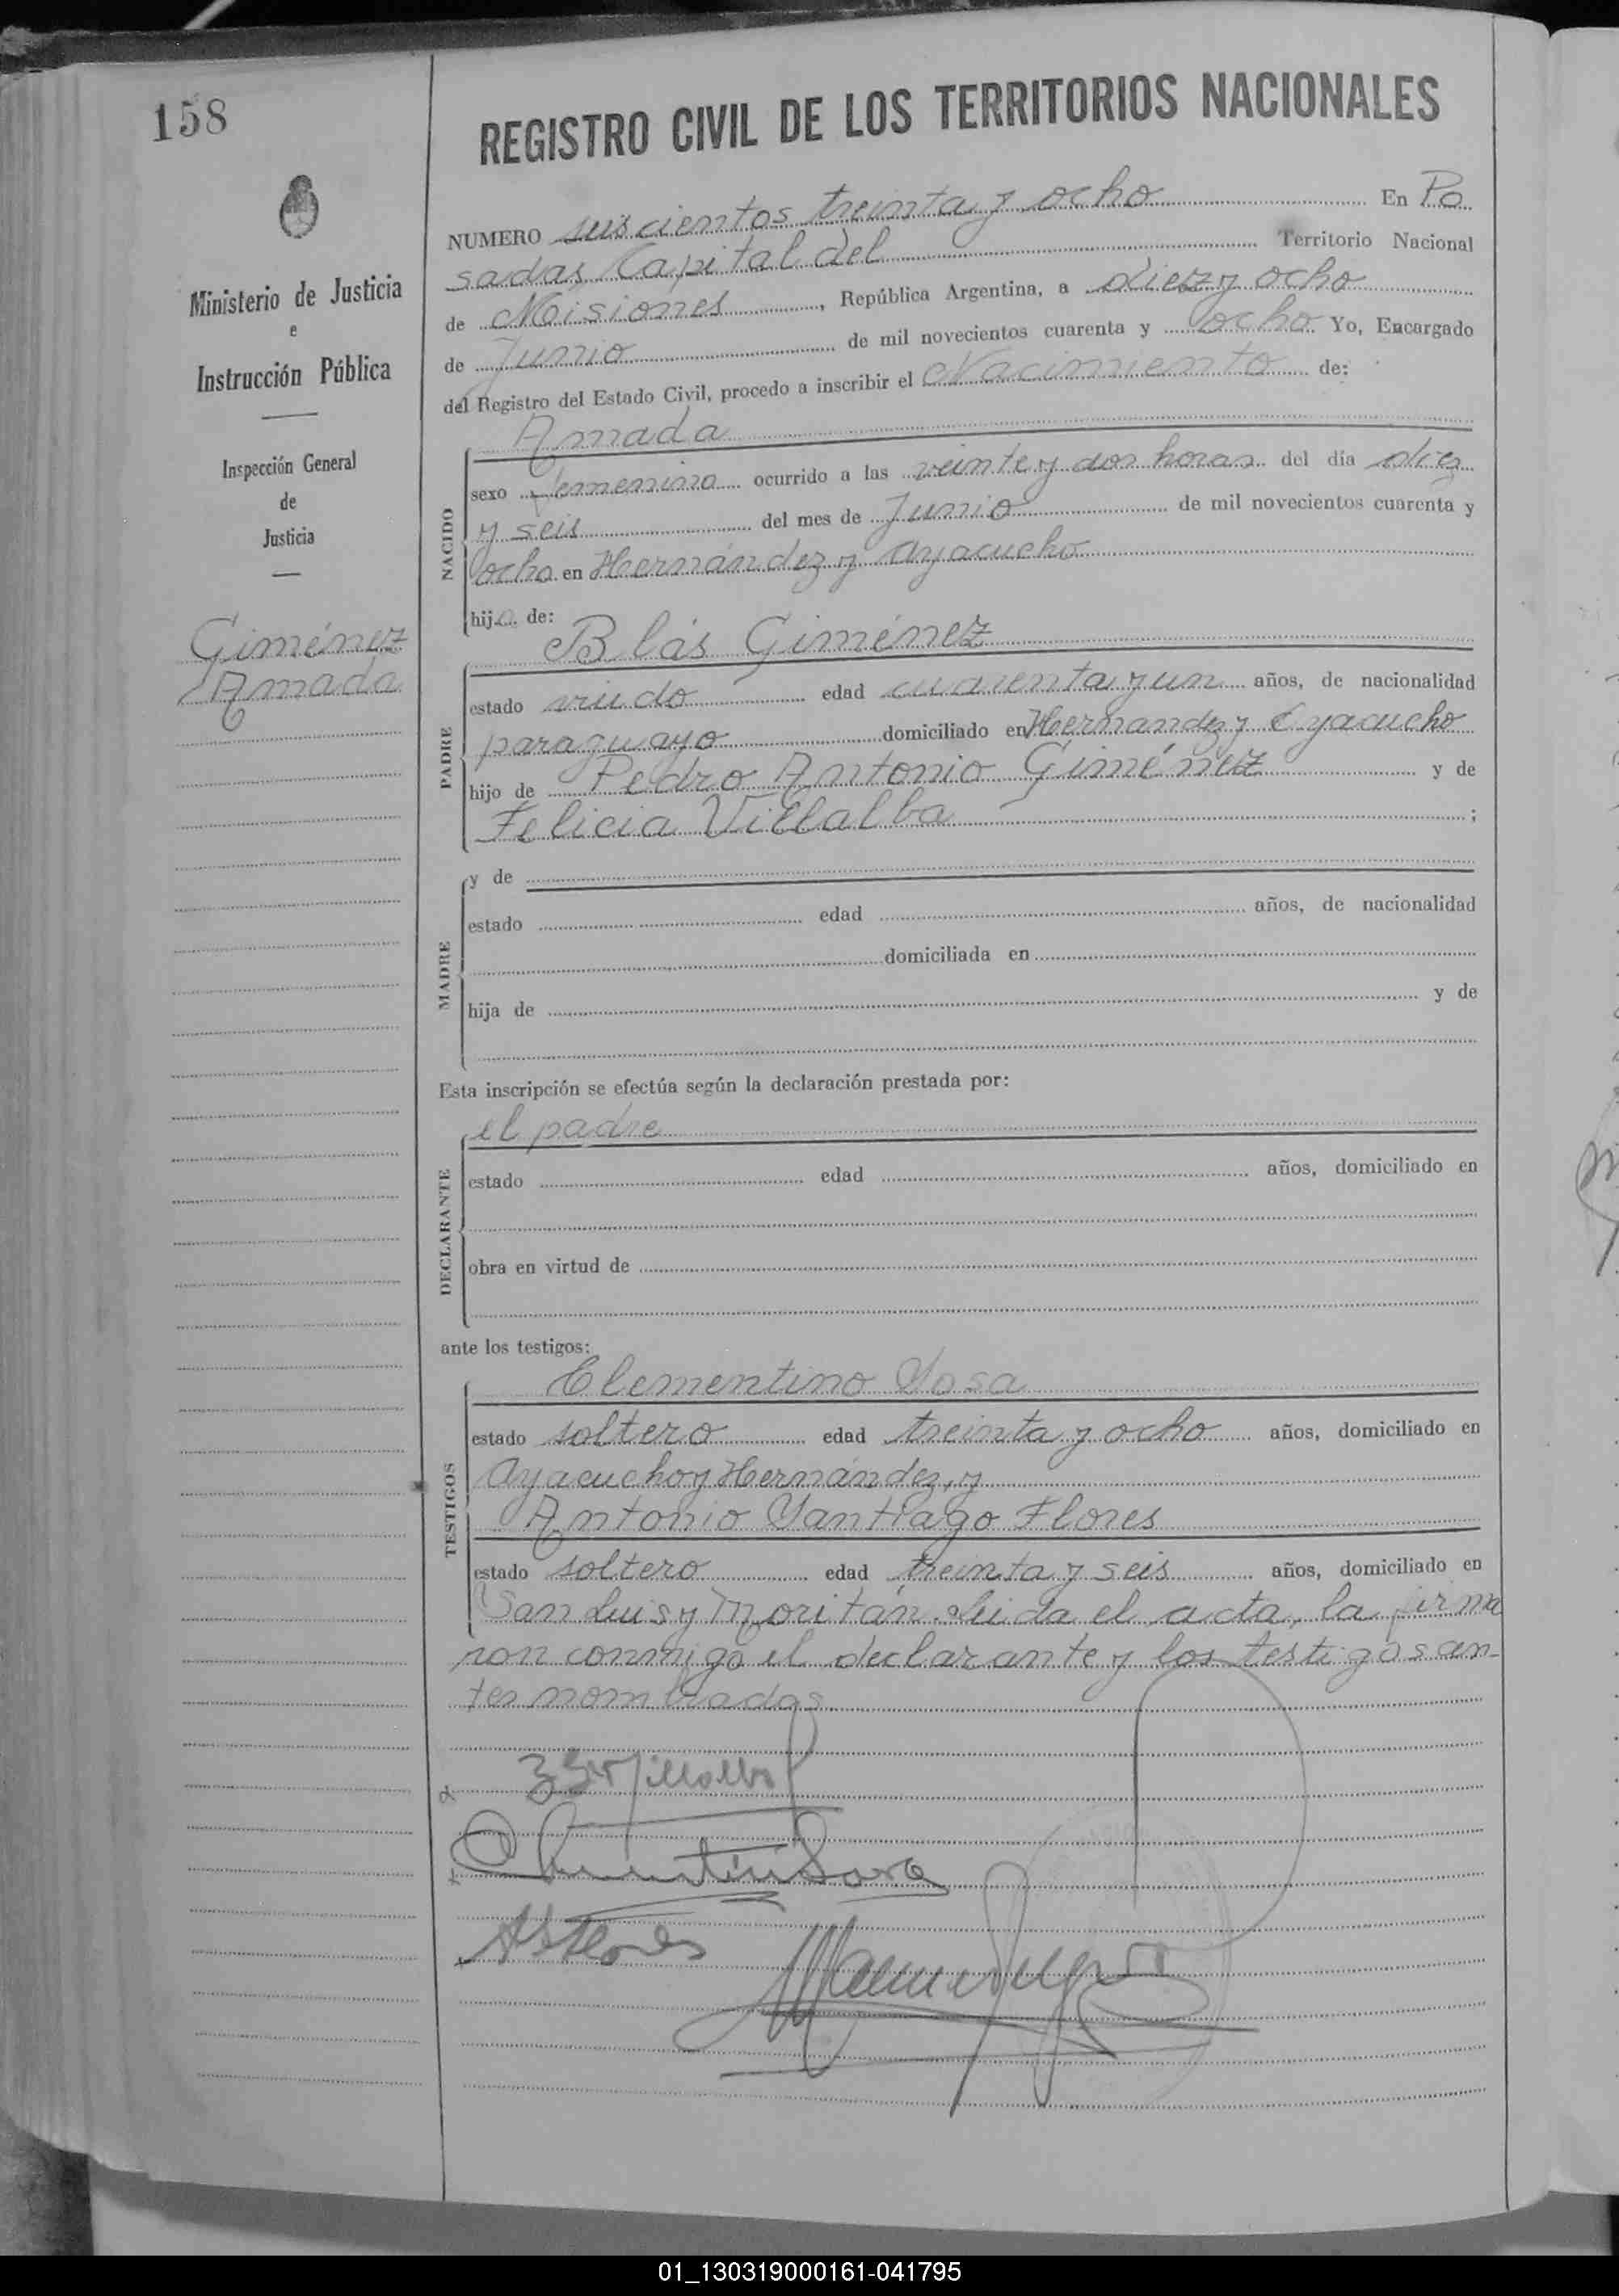 158
REGISTRO CIVIL DE LOS TERRITORIOS NACIONALES
Ministerio de Justicia
e
Instrucción Pública
Inspección General
de
Justicia
Giménez
Amada
NUMERO seiscientos treinta y ocho En Po
sadas Capital del Territorio Nacional
de Misiones, República Argentina, a diez y ocho
de Junio de mil novecientos cuarenta y ocho Yo, Encargado
del Registro del Estado Civil, procedo a inscribir el Nacimiento de:
Amada
NACIDO
sexo femenino ocurrido a las veinte y dos horas del día diez
y seis del mes de Junio de mil novecientos cuarenta y
ocho en Hernández y Ayacucho
hija de:
Blás Giménez
PADRE
estado viudo edad cuarenta y un años, de nacionalidad
paraguayo domiciliado en Hernandez y Ayacucho
hijo de Pedro Antonio Giménez y de
Felicia Villalba ;
MADRE
y de
estado edad años, de nacionalidad
domiciliada en
hija de y de
Esta inscripción se efectúa según la declaración prestada por:
el padre
DECLARANTE
estado edad años, domiciliado en
obra en virtud de
ante los testigos:
Clementino Sosa
TESTIGOS
estado soltero edad treinta y ocho años, domiciliado en
Ayacucho y Hernández, y
Antonio Santiago Flores
estado soltero edad treinta y seis años, domiciliado en
San Luis y Moritán. Leida el acta, la firma
ron conmigo el declarante y los testigos an-
tes nombrados
Villalba
Clementino Sosa
A S Flores
01_130319000161-041795